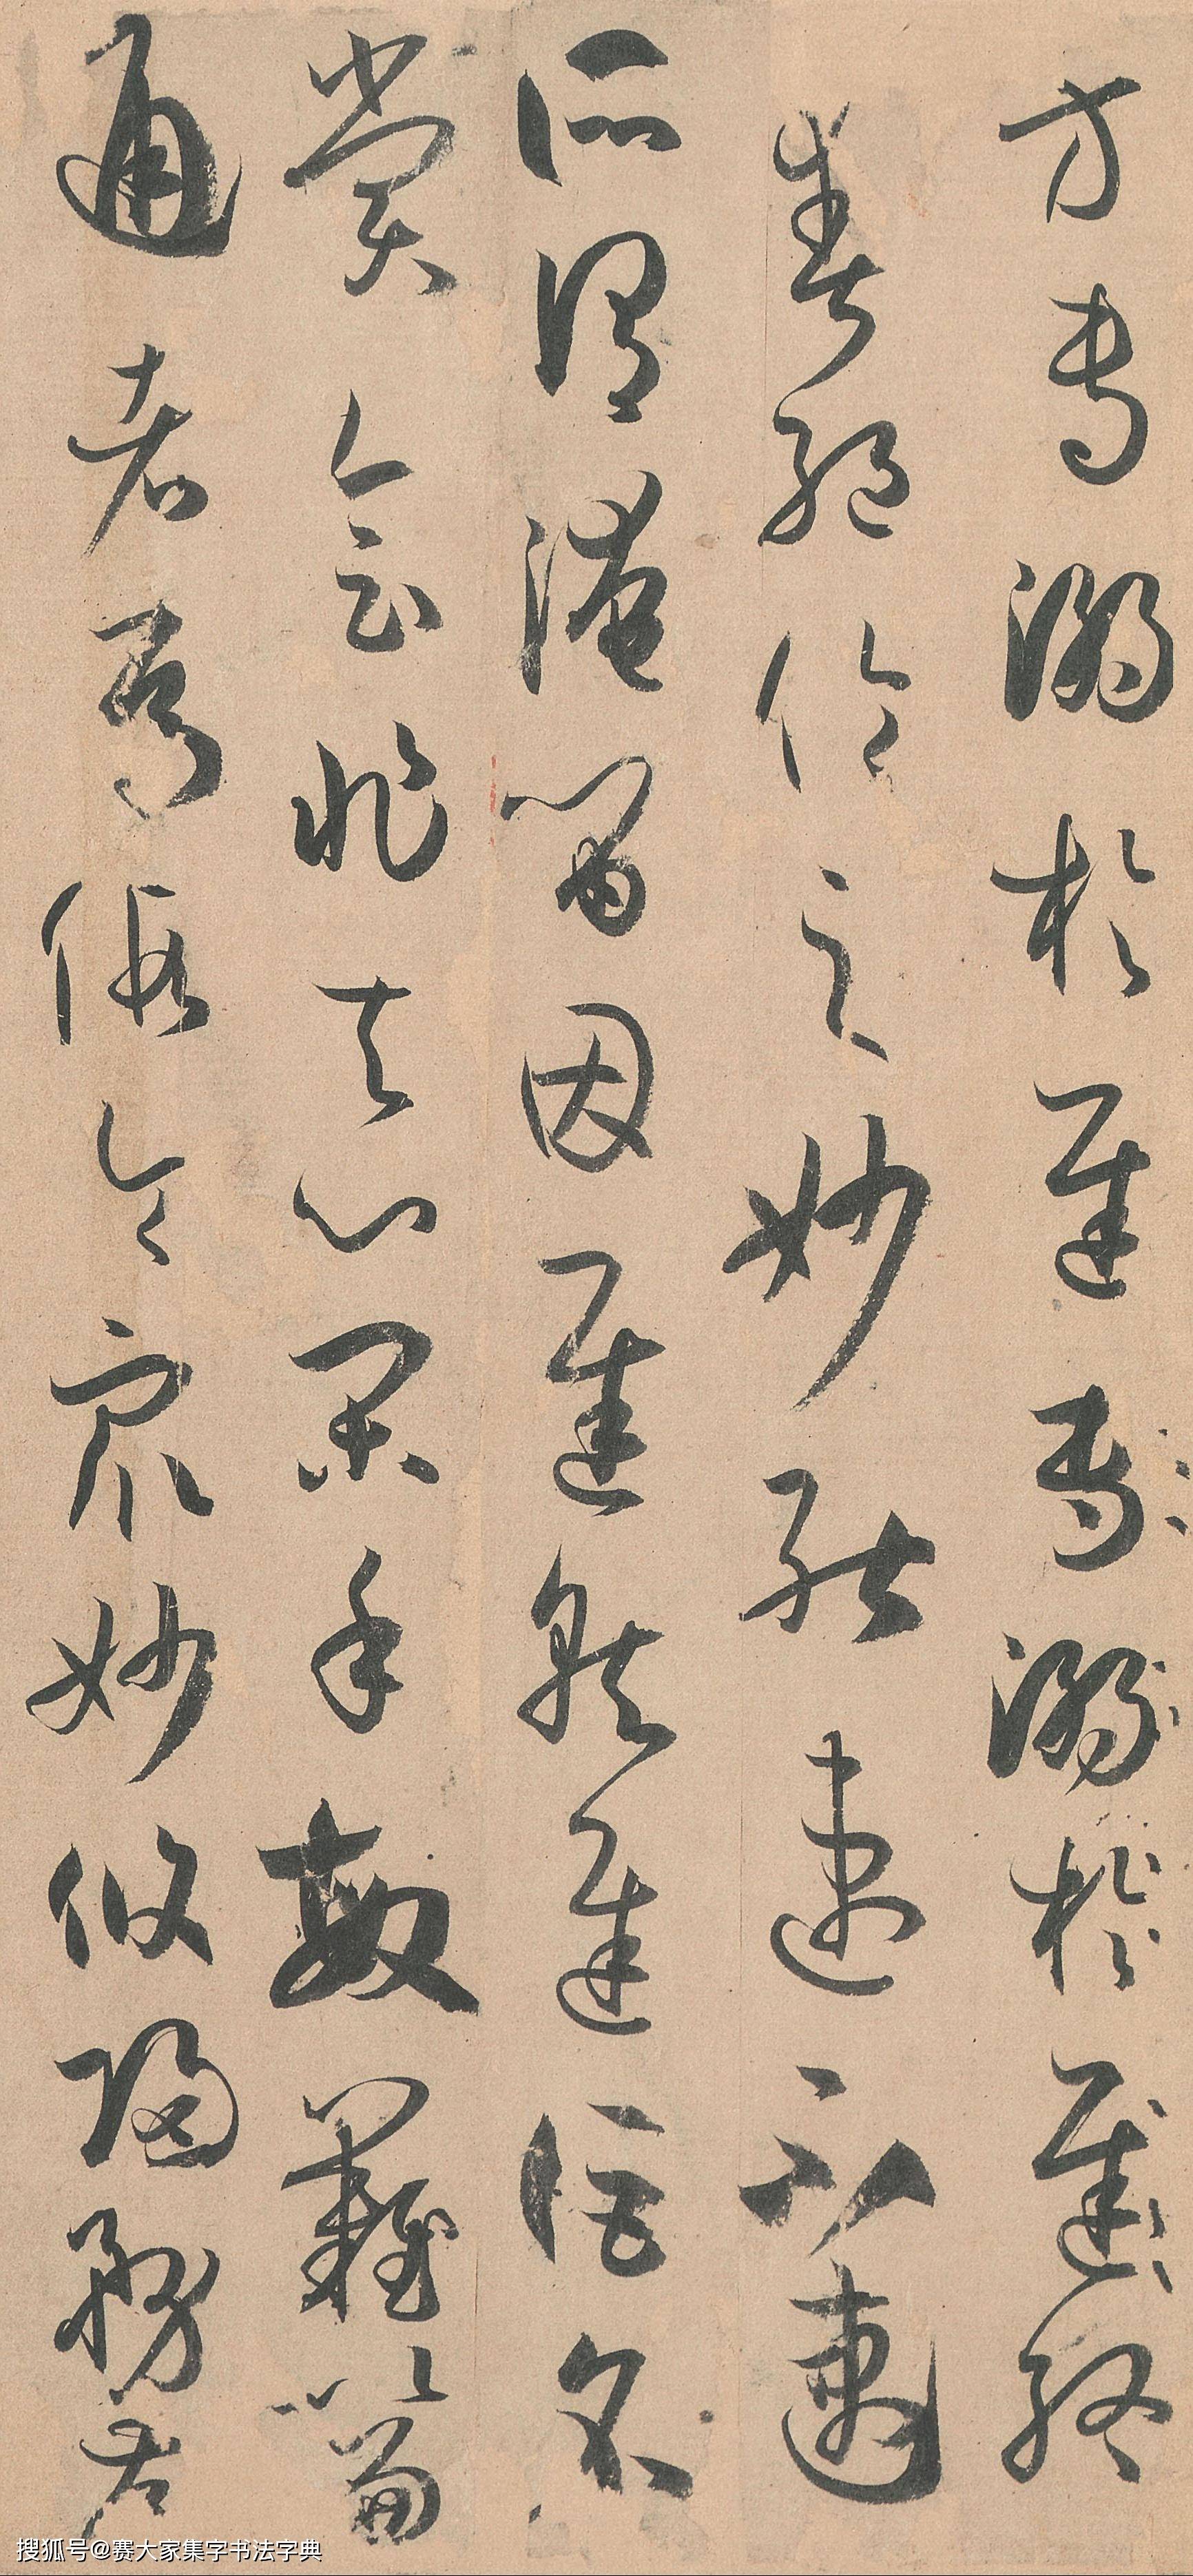 方專溺於遲專溺於遲終
爽絕倫之妙能速不速
所謂淹留因遲就遲詎名
賞會非夫心閑手敏難以兼
通者焉假令眾妙攸歸務存
搜狐号@赛大家集字书法字典